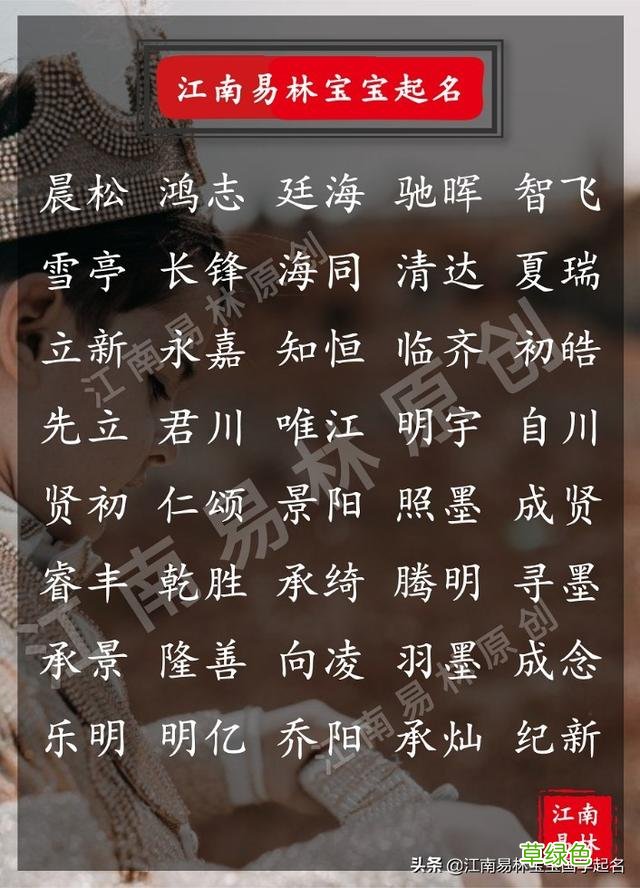 江南易林宝宝起名
晨松 鸿志 廷海 驰晖 智飞
雪亭 长锋 海同 清达 夏瑞
立新 永嘉 知恒 临齐 初皓
先立 君川 唯江 明宇 自川
贤初 仁颂 景阳 照墨 成贤
睿丰 乾胜 承绮 腾明 寻墨
承景 隆善 向凌 羽墨 成念
乐明 明亿 乔阳 承灿 纪新
江南易林原创
江南易林原创
江南易林原创
江南
易林
草绿色
头条 @江南易林宝宝国学起名